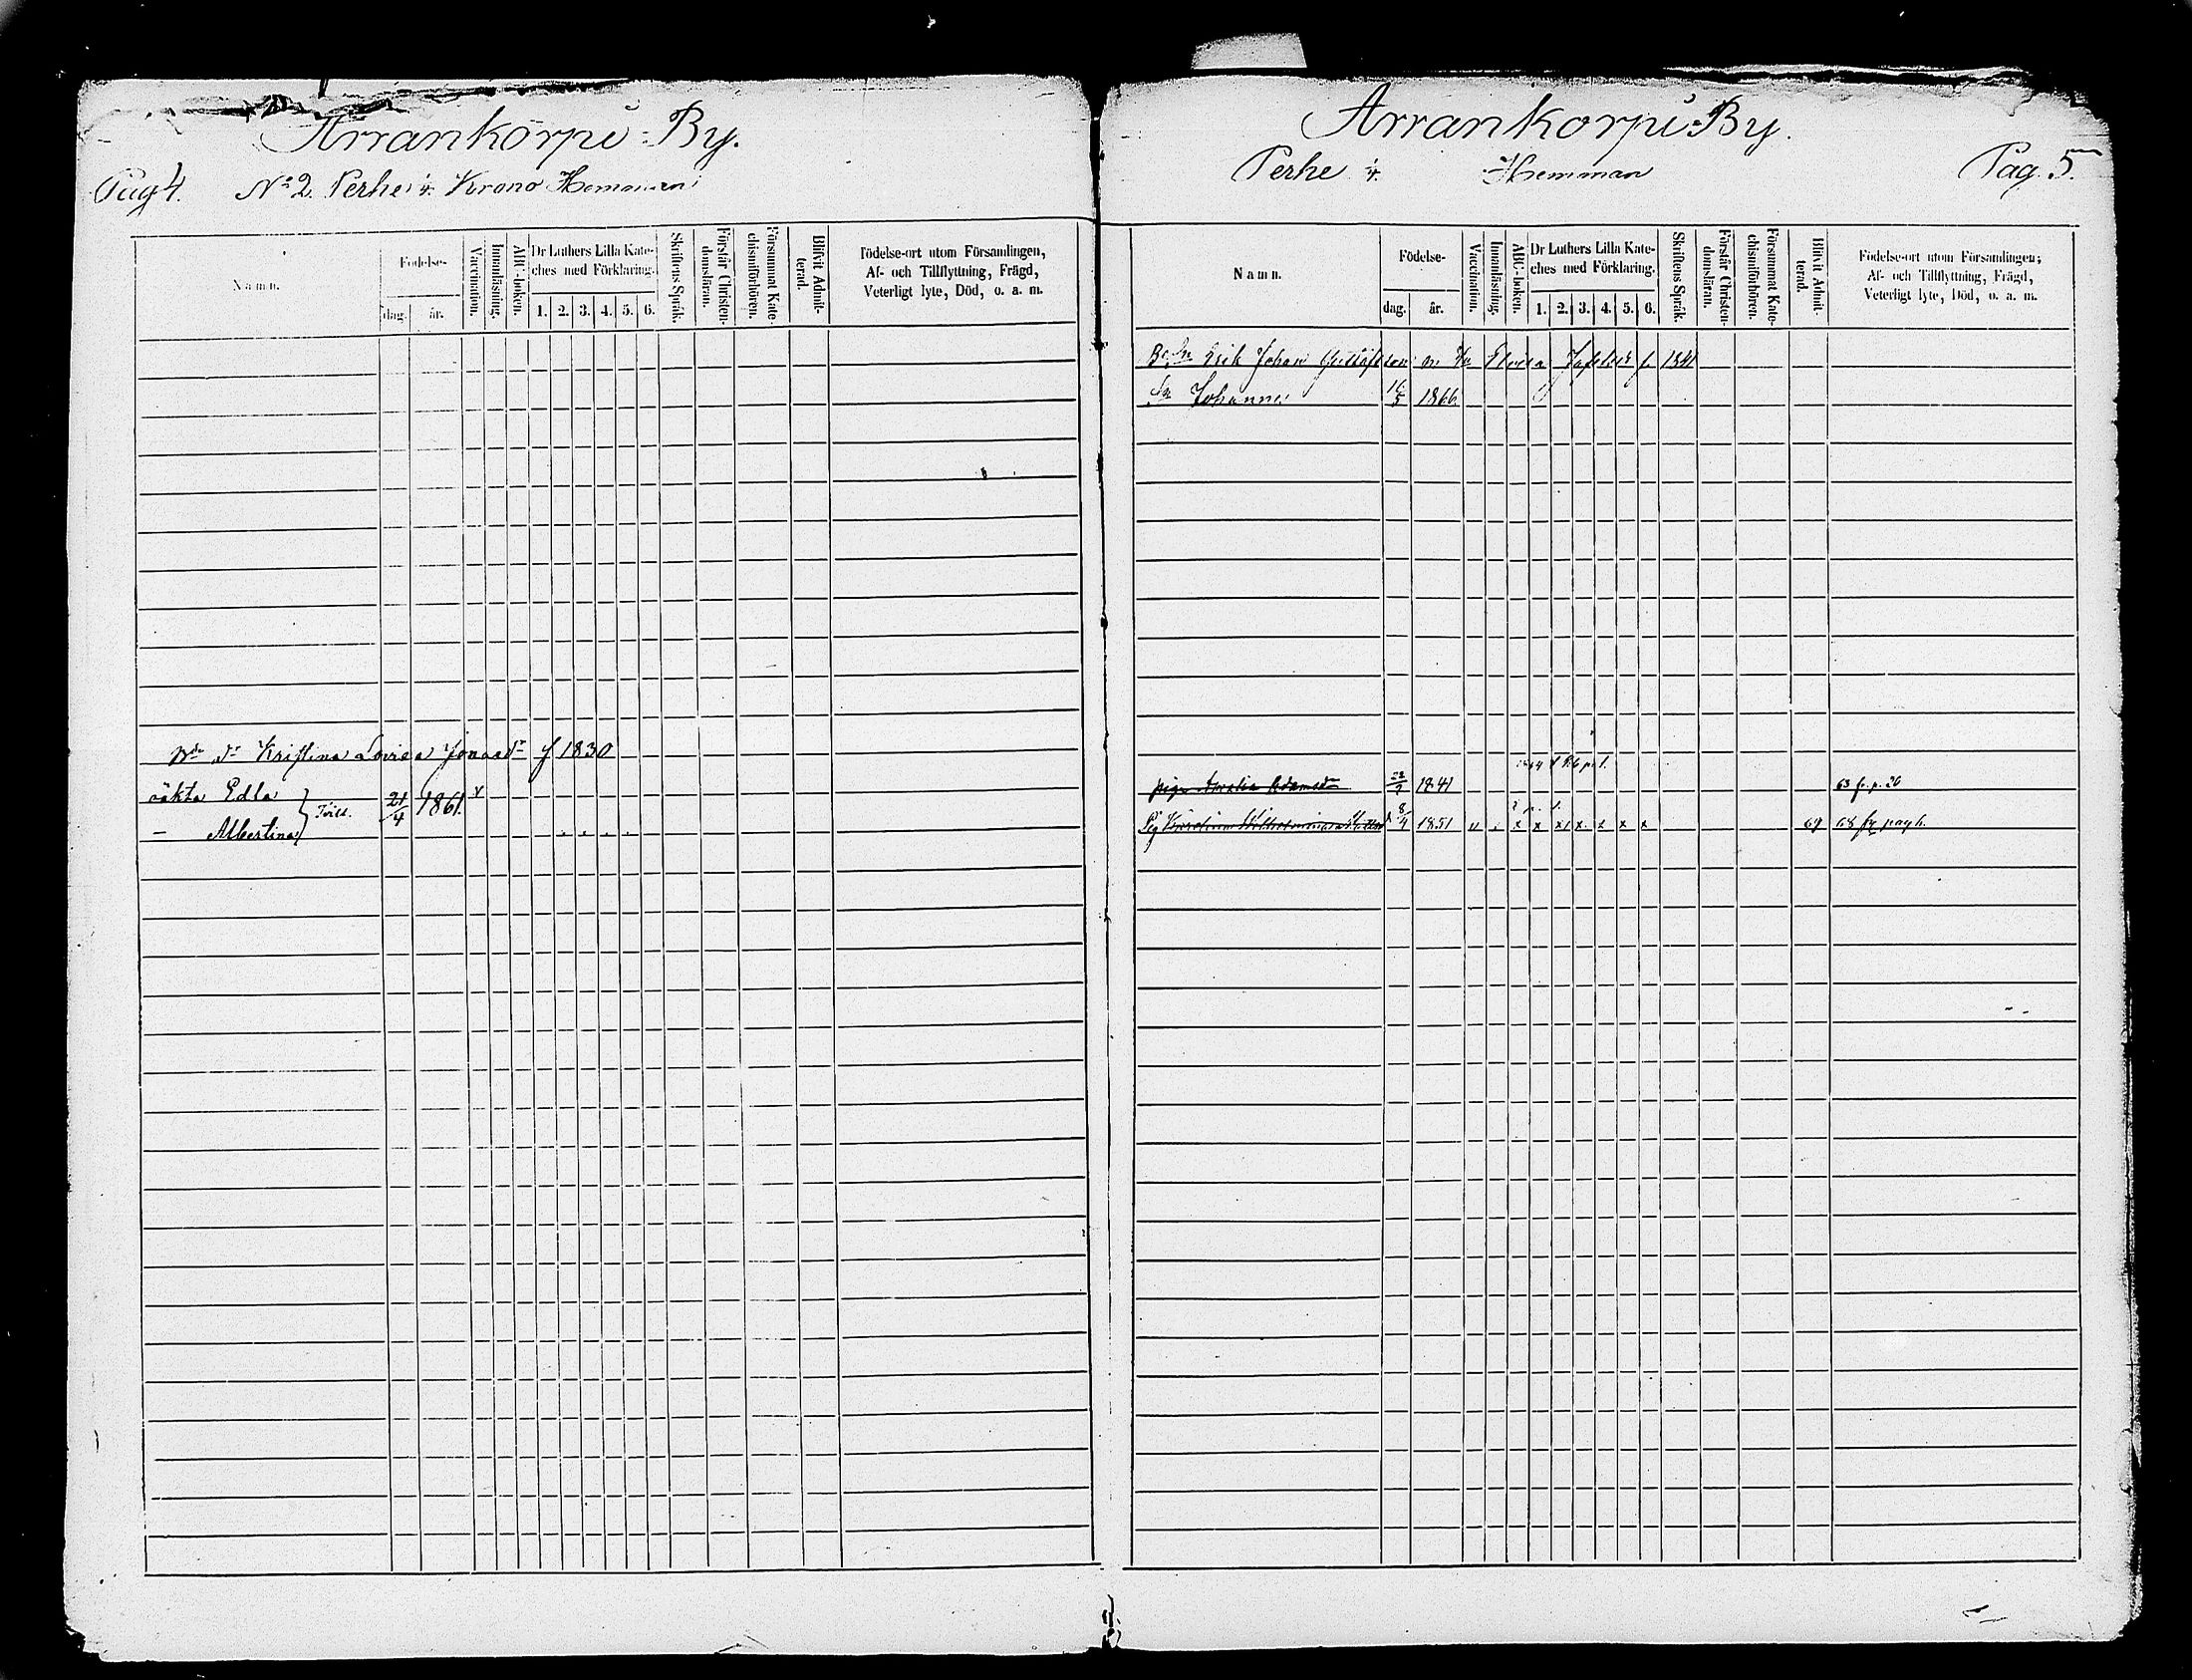 Arrankorpi By.
Pag 4. No 2. Perhe Krono Hemman
Namn.
Födelse-
dag. år.
Vaccination.
Innanläsning.
ABC-boken.
Dr Luthers Lilla Kate-
ches med Förklaring.
1. 2. 3. 4. 5. 6.
Skriftens Språk.
Förstår Christen-
domsläran.
Försummat Kate-
chismiförhören.
Blifvit Admit-
terad.
Födelse-ort utom Församlingen,
Af- och Tillflyttning, Frägd,
Veterligt lyte, Död, o. a. m.
Kristina Lovisa f 1830
oäkta Edla
21/4 1861. v
— Albertina
Arrankorpi By.
Perhe Hemman Pag. 5.
Namn.
Födelse-
dag. år.
Vaccination.
Innanläsning.
ABC-boken.
Dr Luthers Lilla Kate-
ches med Förklaring.
1. 2. 3. 4. 5. 6.
Skriftens Språk.
Förstår Christen-
domsläran.
Försummat Kate-
chismiförhören.
Blifvit Admit-
terad.
Födelse-ort utom Församlingen,
Af- och Tillflyttning, Frägd,
Veterligt lyte, Död, o. a. m.
Erik Johan Gustafsson m Hu f. 1841
Sn Johannes 16/5 1866
1841 63 fr. p. 26
Wilhelmina 8/4 1851 v x x x x x x x 69 68 pag 6.